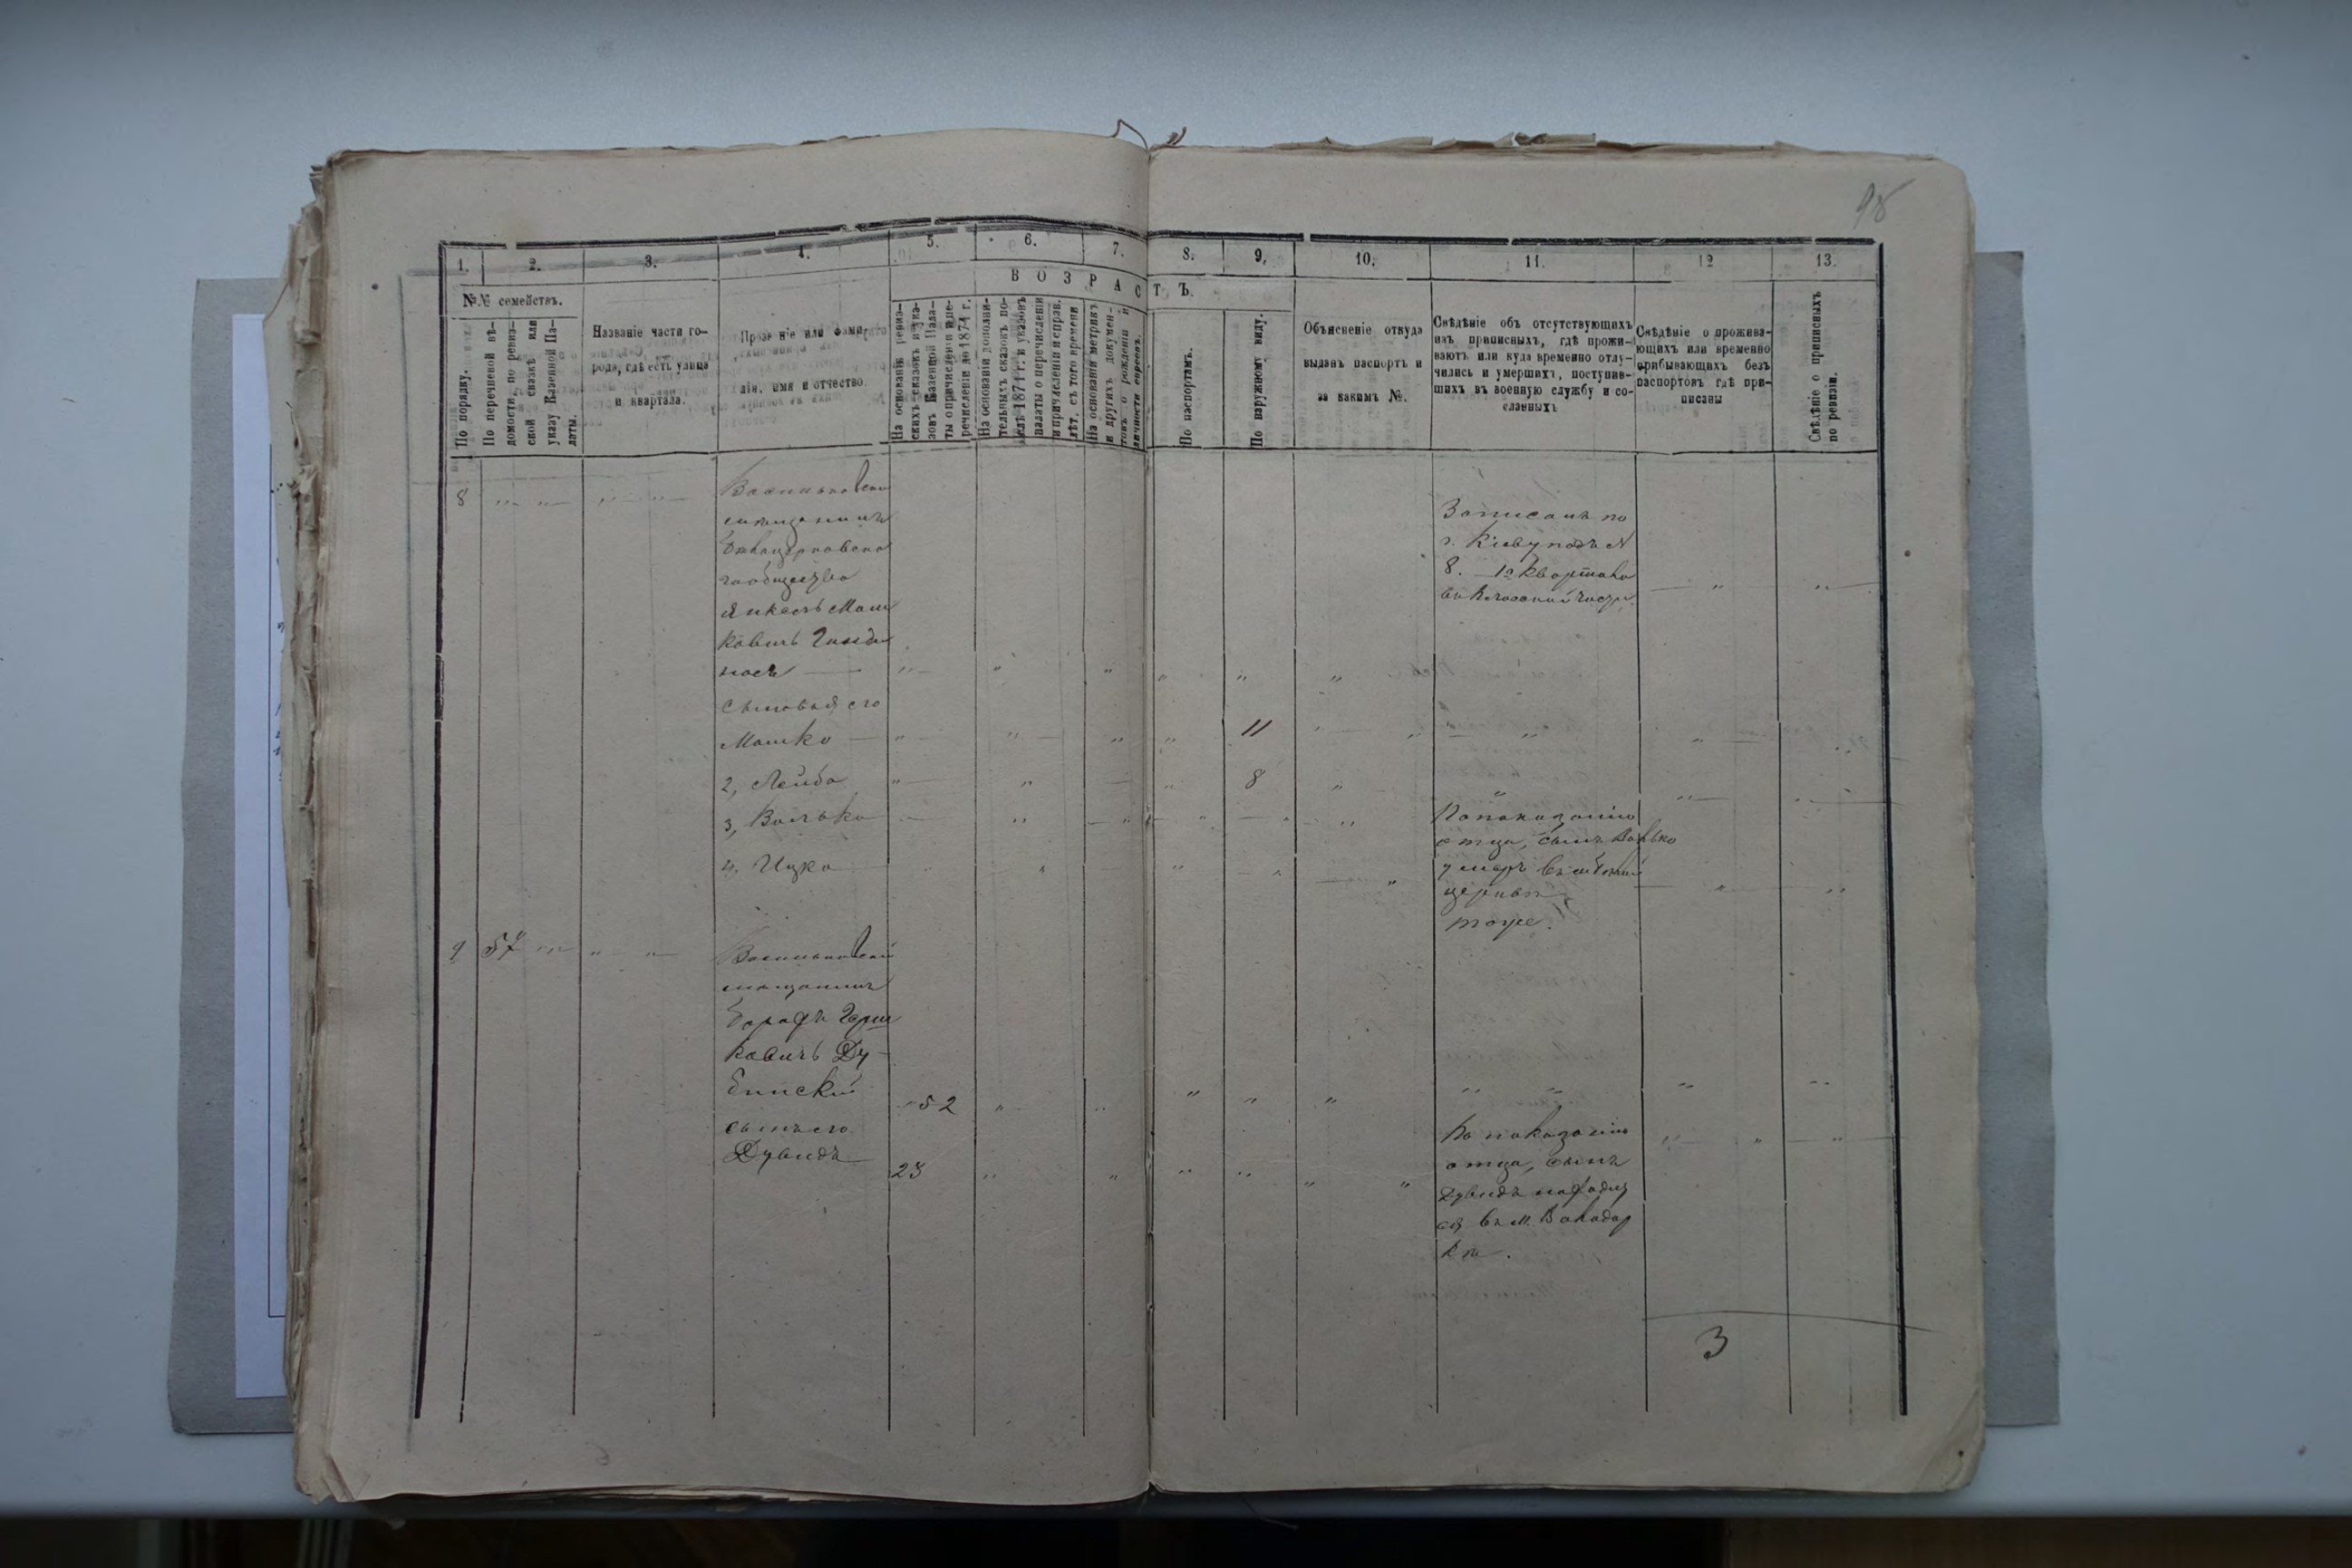 98
1. 2. 3. 4. 5. 6. 7. 8. 9. 10. 11. 12 13.
ВОЗРАСТЪ.
№№ семействъ.
По порядку.
По перечневой вѣ-
домости, по ревиз-
ской сказкѣ или
указу Казенной Па-
латы.
Названіе части го-
рода, гдѣ есть улица
и квартала.
Прозв ніе или фами-
лія, имя и отчество.
На основаніи ревиз-
скихъ сказокъ и ука-
зовъ Казенной Пала-
ты о причисленіи и пе-
речисленіи до 1874 г.
На основаніи дополни-
тельныхъ сказокъ по-
слѣ 1874 г. и указовъ
палаты о перечисленіи
и причисленіи и справ.
лѣт. съ того времени
На основаніи метрикъ
и другихъ докумен-
товъ о рожденіи и
личности евреевъ.
По паспортамъ.
По наружному виду.
Объясненіе откуда
выданъ паспортъ и
за какимъ №.
Свѣдѣніе объ отсутствующихъ
изъ приписныхъ, гдѣ прожи-
ваютъ или куда временно отлу-
чились и умершихъ, поступив-
шихъ въ военную службу и со-
сланныхъ
Свѣдѣніе о прожива-
ющихъ или временно
прибывающихъ безъ
паспортовъ гдѣ при-
писаны
Свѣдѣніе о приписныхъ
по ревизіи.
8
Васильковскій
мѣщанинъ
Бѣлоцерковска
го общества
Янкель Мош
ковичъ
Записанъ по
г. Кіеву подъ №
8. 1го квартала
сыновья его
Мошко 11
2, Лейба 8
3, Волько
4, Ицко
По показанію
отца, сынъ Волько
умеръ въ Бѣлой
церкви
тоже.
9 57
Васильковскій
мѣщанинъ
Герш
ковичъ Ду-
бинскій 52
сынъ его
Дувидъ 23
По показанію
отца, сынъ
Дувидъ находит
ся въ м. Володар
кѣ.
3